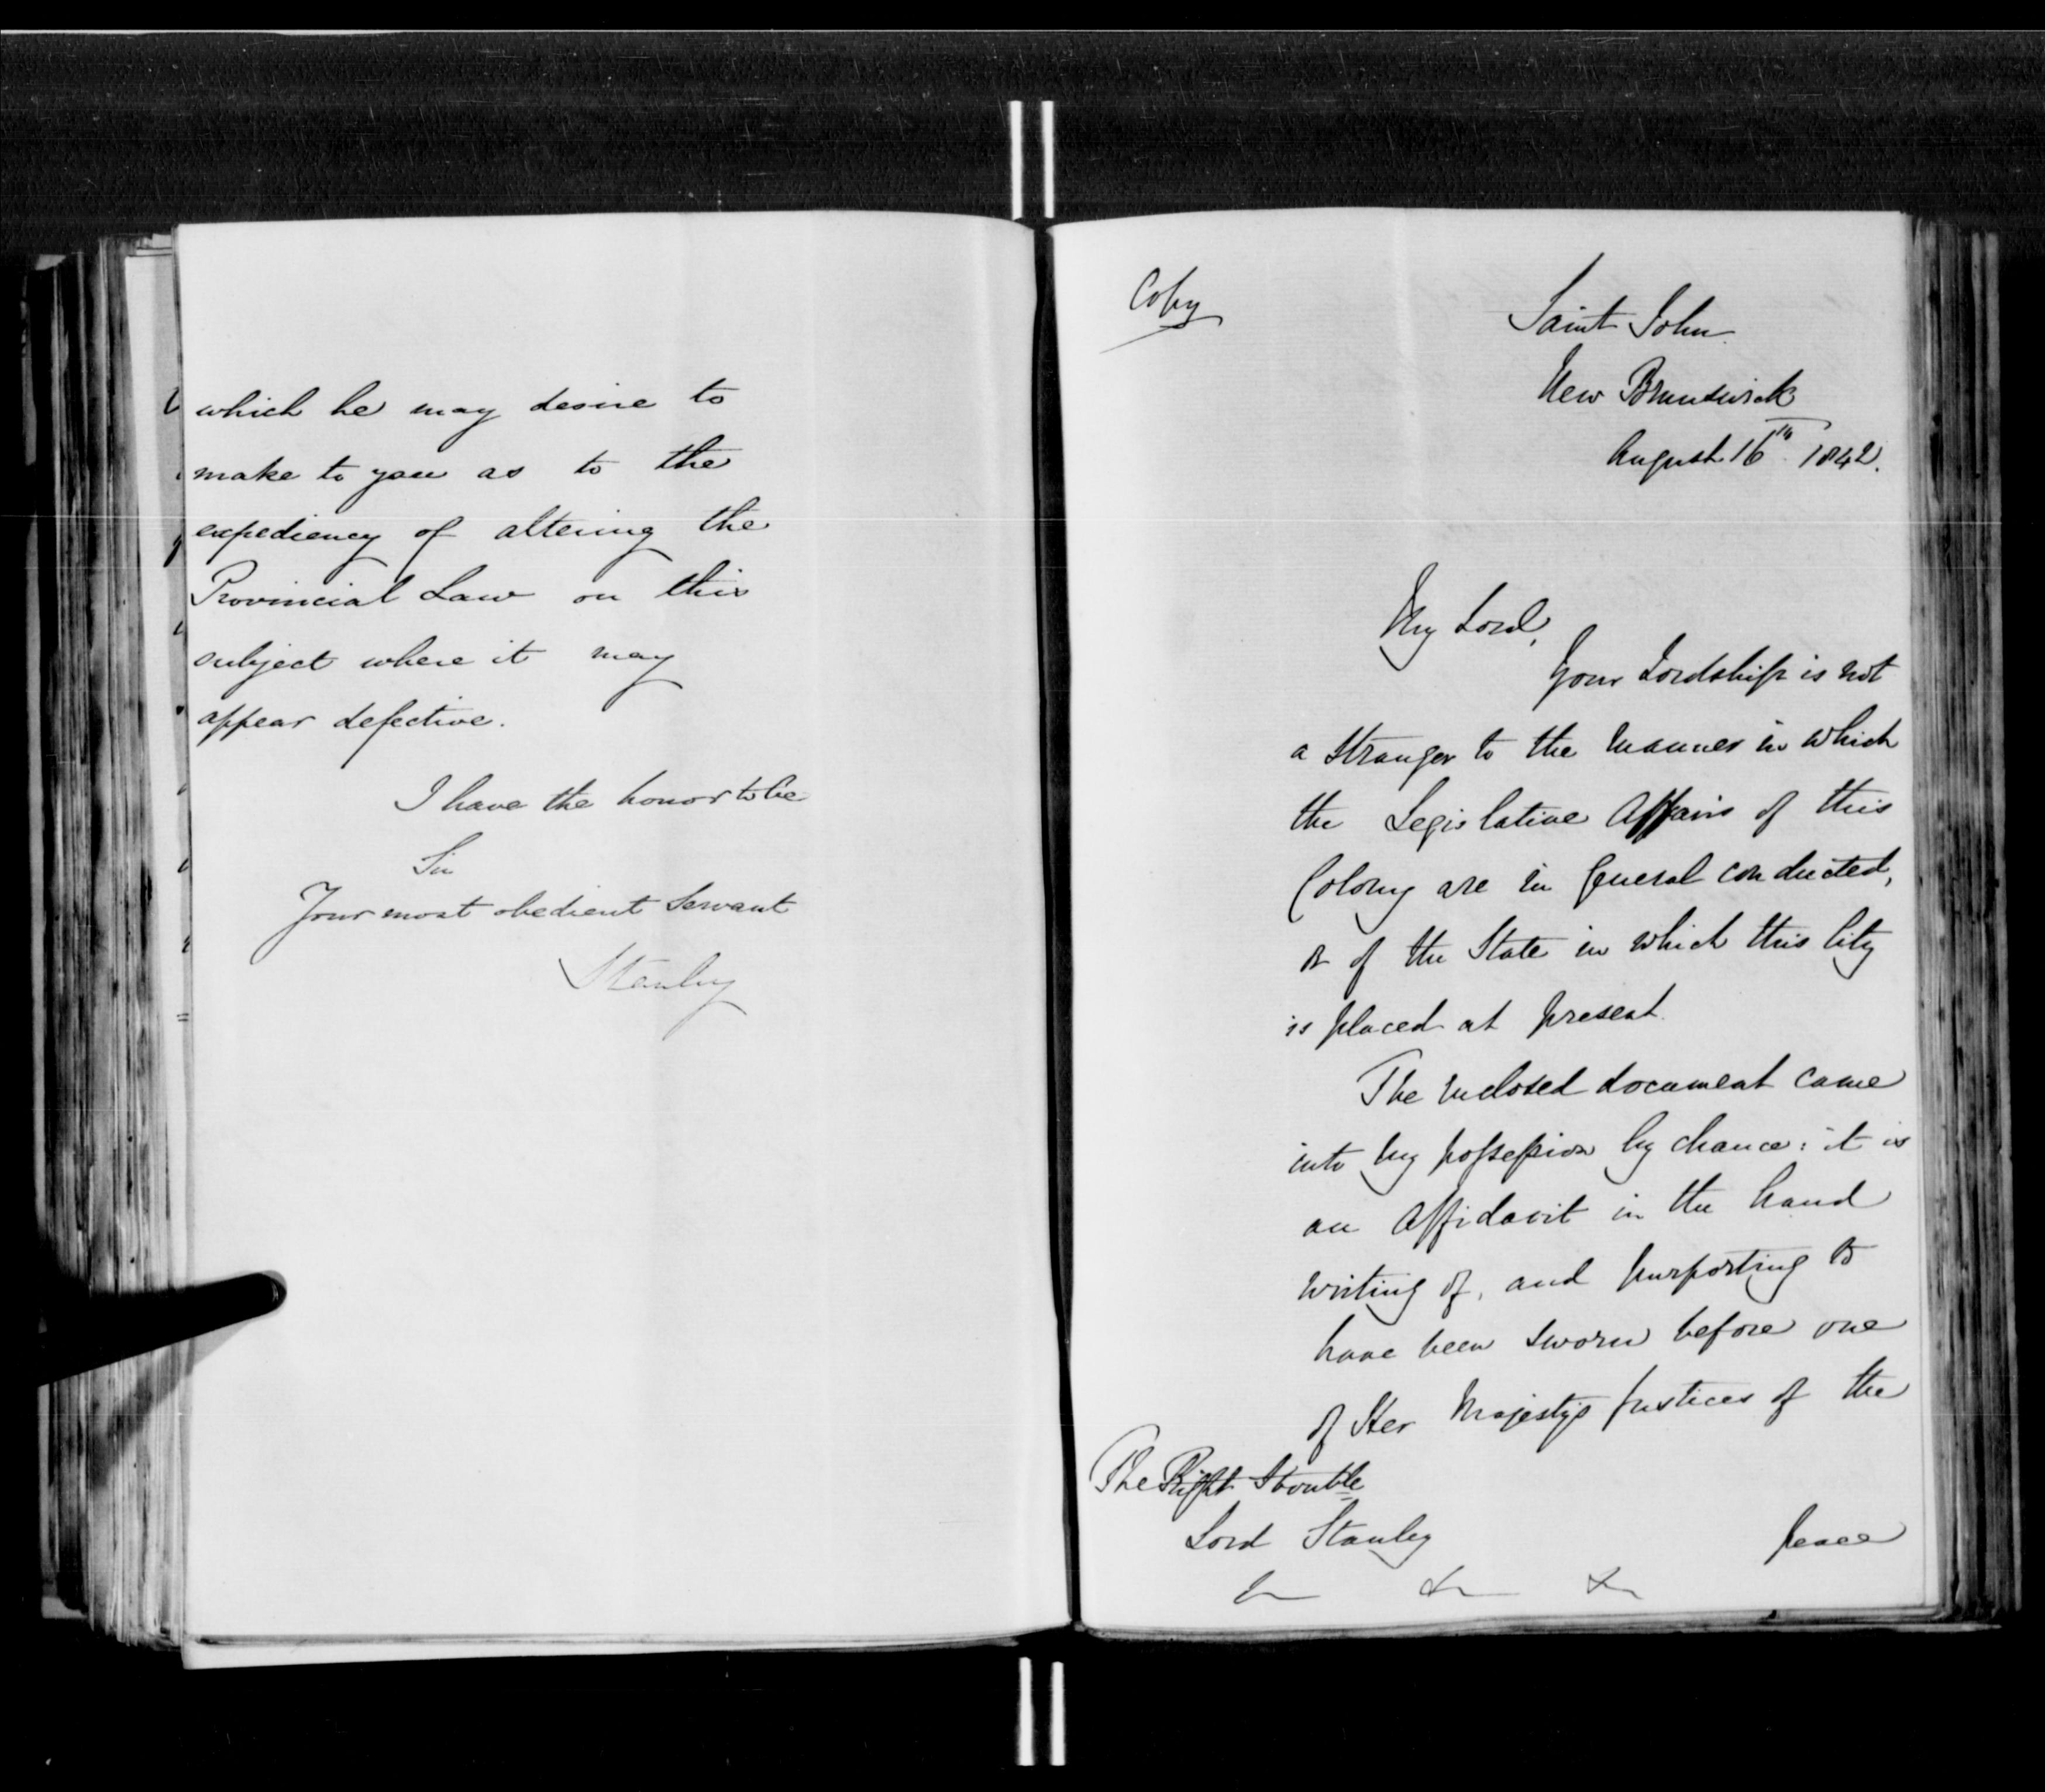 which he may desire to
make to you as to the
expediency of altering the
Provincial Law on this
subject where it may
appear defective.
I have the honor to be
Sir
Your most obedient Servant
Stanley
Copy
Saint John
New Brunswick
August 16th. 1842.
My Lord,
Your Lordship is not
a Stranger to the manner in which
the Legislative Affairs of this
Colony are in General conducted,
or of the State in which this City
is placed at present.
The inclosed document came
into my possession by chance: it is
an Affidavit in the hand
writing of, and purporting to
have been sworn before one
of Her Majesty's Justices of the
The Right Honble
Lord Stanley
peace